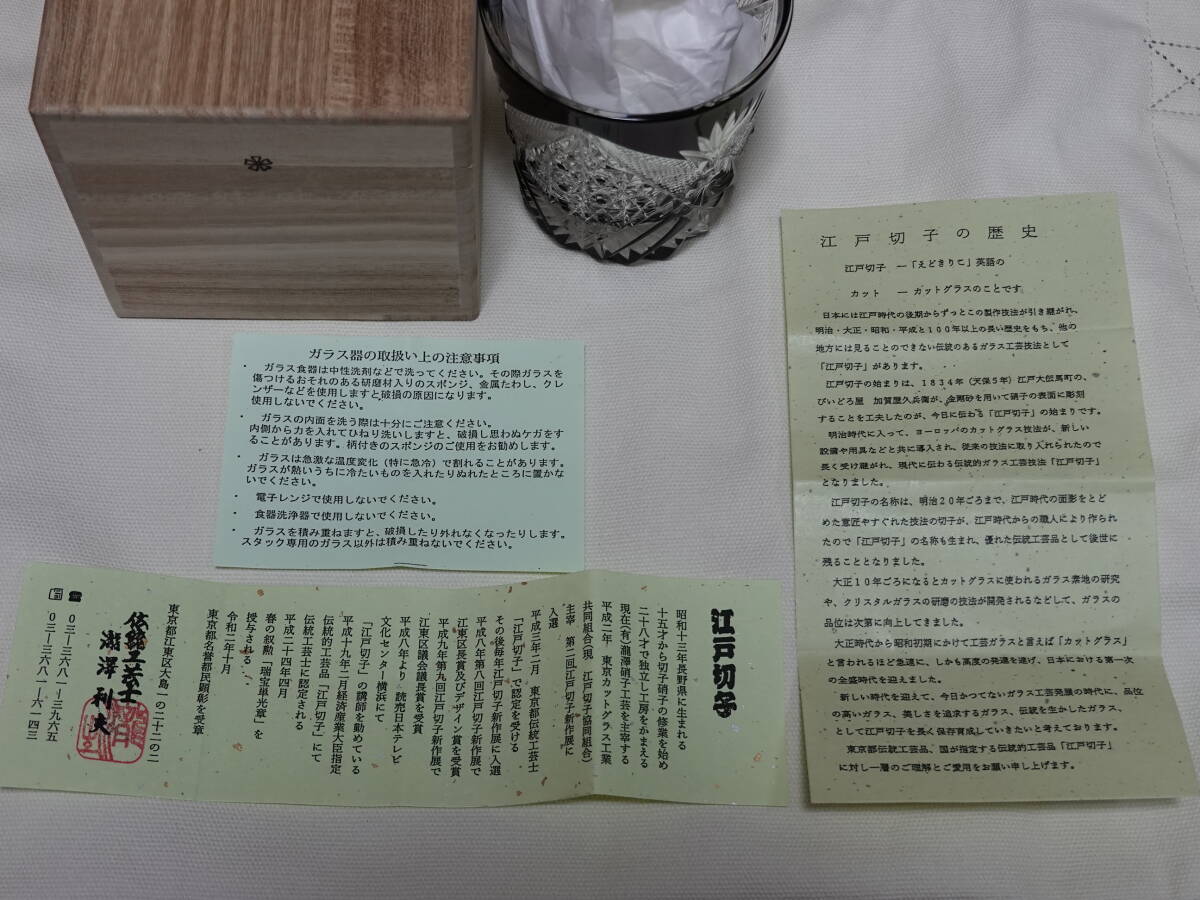 ガラス器の取扱い上の注意事項
・ ガラス食器は中性洗剤などで洗ってください。その際ガラスを
傷つけるおそれのある研磨材入りのスポンジ、金属たわし、クレ
ンザーなどを使用しますと破損の原因になります。
使用しないでください。
・ ガラスの内面を洗う際は十分にご注意ください。
内側から力を入れてひねり洗いしますと、破損し思わぬケガをす
ることがあります。柄付きのスポンジのご使用をお勧めします。
・ ガラスは急激な温度変化(特に急冷)で割れることがあります。
ガラスが熱いうちに冷たいものを入れたりぬれたところに置かな
いでください。
・ 電子レンジで使用しないでください。
・ 食器洗浄器で使用しないでください。
・ ガラスを積み重ねますと、破損したり外れなくなったりします。
スタック専用のガラス以外は積み重ねないでください。
江戸切子の歴史
江戸切子 ―「えどきりこ」英語の
カット ― カットグラスのことです
日本には江戸時代の後期からずっとこの製作技法が引き継がれ、
明治・大正・昭和・平成と100年以上の長い歴史をもち、他の
地方には見ることのできない伝統のあるガラス工芸技法として
「江戸切子」があります。
江戸切子の始まりは、1834年(天保5年)江戸大伝馬町の、
びいどろ屋 加賀屋久兵衛が、金剛砂を用いて硝子の表面に彫刻
することを工夫したのが、今日に伝わる「江戸切子」の始まりです。
明治時代に入って、ヨーロッパのカットグラス技法が、新しい
設備や用具などと共に導入され、従来の技法に取り入れられたので
長く受け継がれ、現代に伝わる伝統的ガラス工芸技法「江戸切子」
となりました。
江戸切子の名称は、明治20年ごろまで、江戸時代の面影をとど
めた意匠やすぐれた技法の切子が、江戸時代からの職人により作られ
たので「江戸切子」の名称も生まれ、優れた伝統工芸品として後世に
残ることとなりました。
大正10年ごろになるとカットグラスに使われるガラス素地の研究
や、クリスタルガラスの研磨の技法が開発されるなどして、ガラスの
品位は次第に向上してきました。
大正時代から昭和初期にかけて工芸ガラスと言えば「カットグラス」
と言われるほど急速に、しかも高度の発達を遂げ、日本における第一次
の全盛時代を迎えました。
新しい時代を迎えて、今日かつてないガラス工芸発展の時代に、品位
の高いガラス、美しさを追求するガラス、伝統を生かしたガラス、
として江戸切子を長く保存育成していきたいと考えております。
東京都伝統工芸品、国が指定する伝統的工芸品「江戸切子」
に対し一層のご理解とご愛用をお願い申し上げます。
江戸切子
昭和十三年長野県に生まれる
十五才から切子硝子の修業を始め
二十八才で独立し工房をかまえる
現在(有)瀧澤硝子工芸を主宰する
平成二年 東京カットグラス工業
共同組合(現 江戸切子協同組合)
主宰 第二回江戸切子新作展に
入選
平成三年二月 東京都伝統工芸士
「江戸切子」で認定を受ける
その後毎年江戸切子新作展に入選
平成八年第八回江戸切子新作展で
江東区長賞及びデザイン賞を受賞
平成九年第九回江戸切子新作展で
江東区議会議長賞を受賞
平成八年より 読売日本テレビ
文化センター横浜にて
「江戸切子」の講師を勤めている
平成十九年二月経済産業大臣指定
伝統的工芸品「江戸切子」にて
伝統工芸士に認定される
平成二十四年四月
春の叙勲「瑞宝単光章」を
授与される
令和二年十月
東京都名誉都民顕彰を受章
東京都江東区大島一の二十二の二
伝統工芸士
瀧澤利夫
☎ 〇三―三六八一―三九六五
〇三―三六八一―六一四三